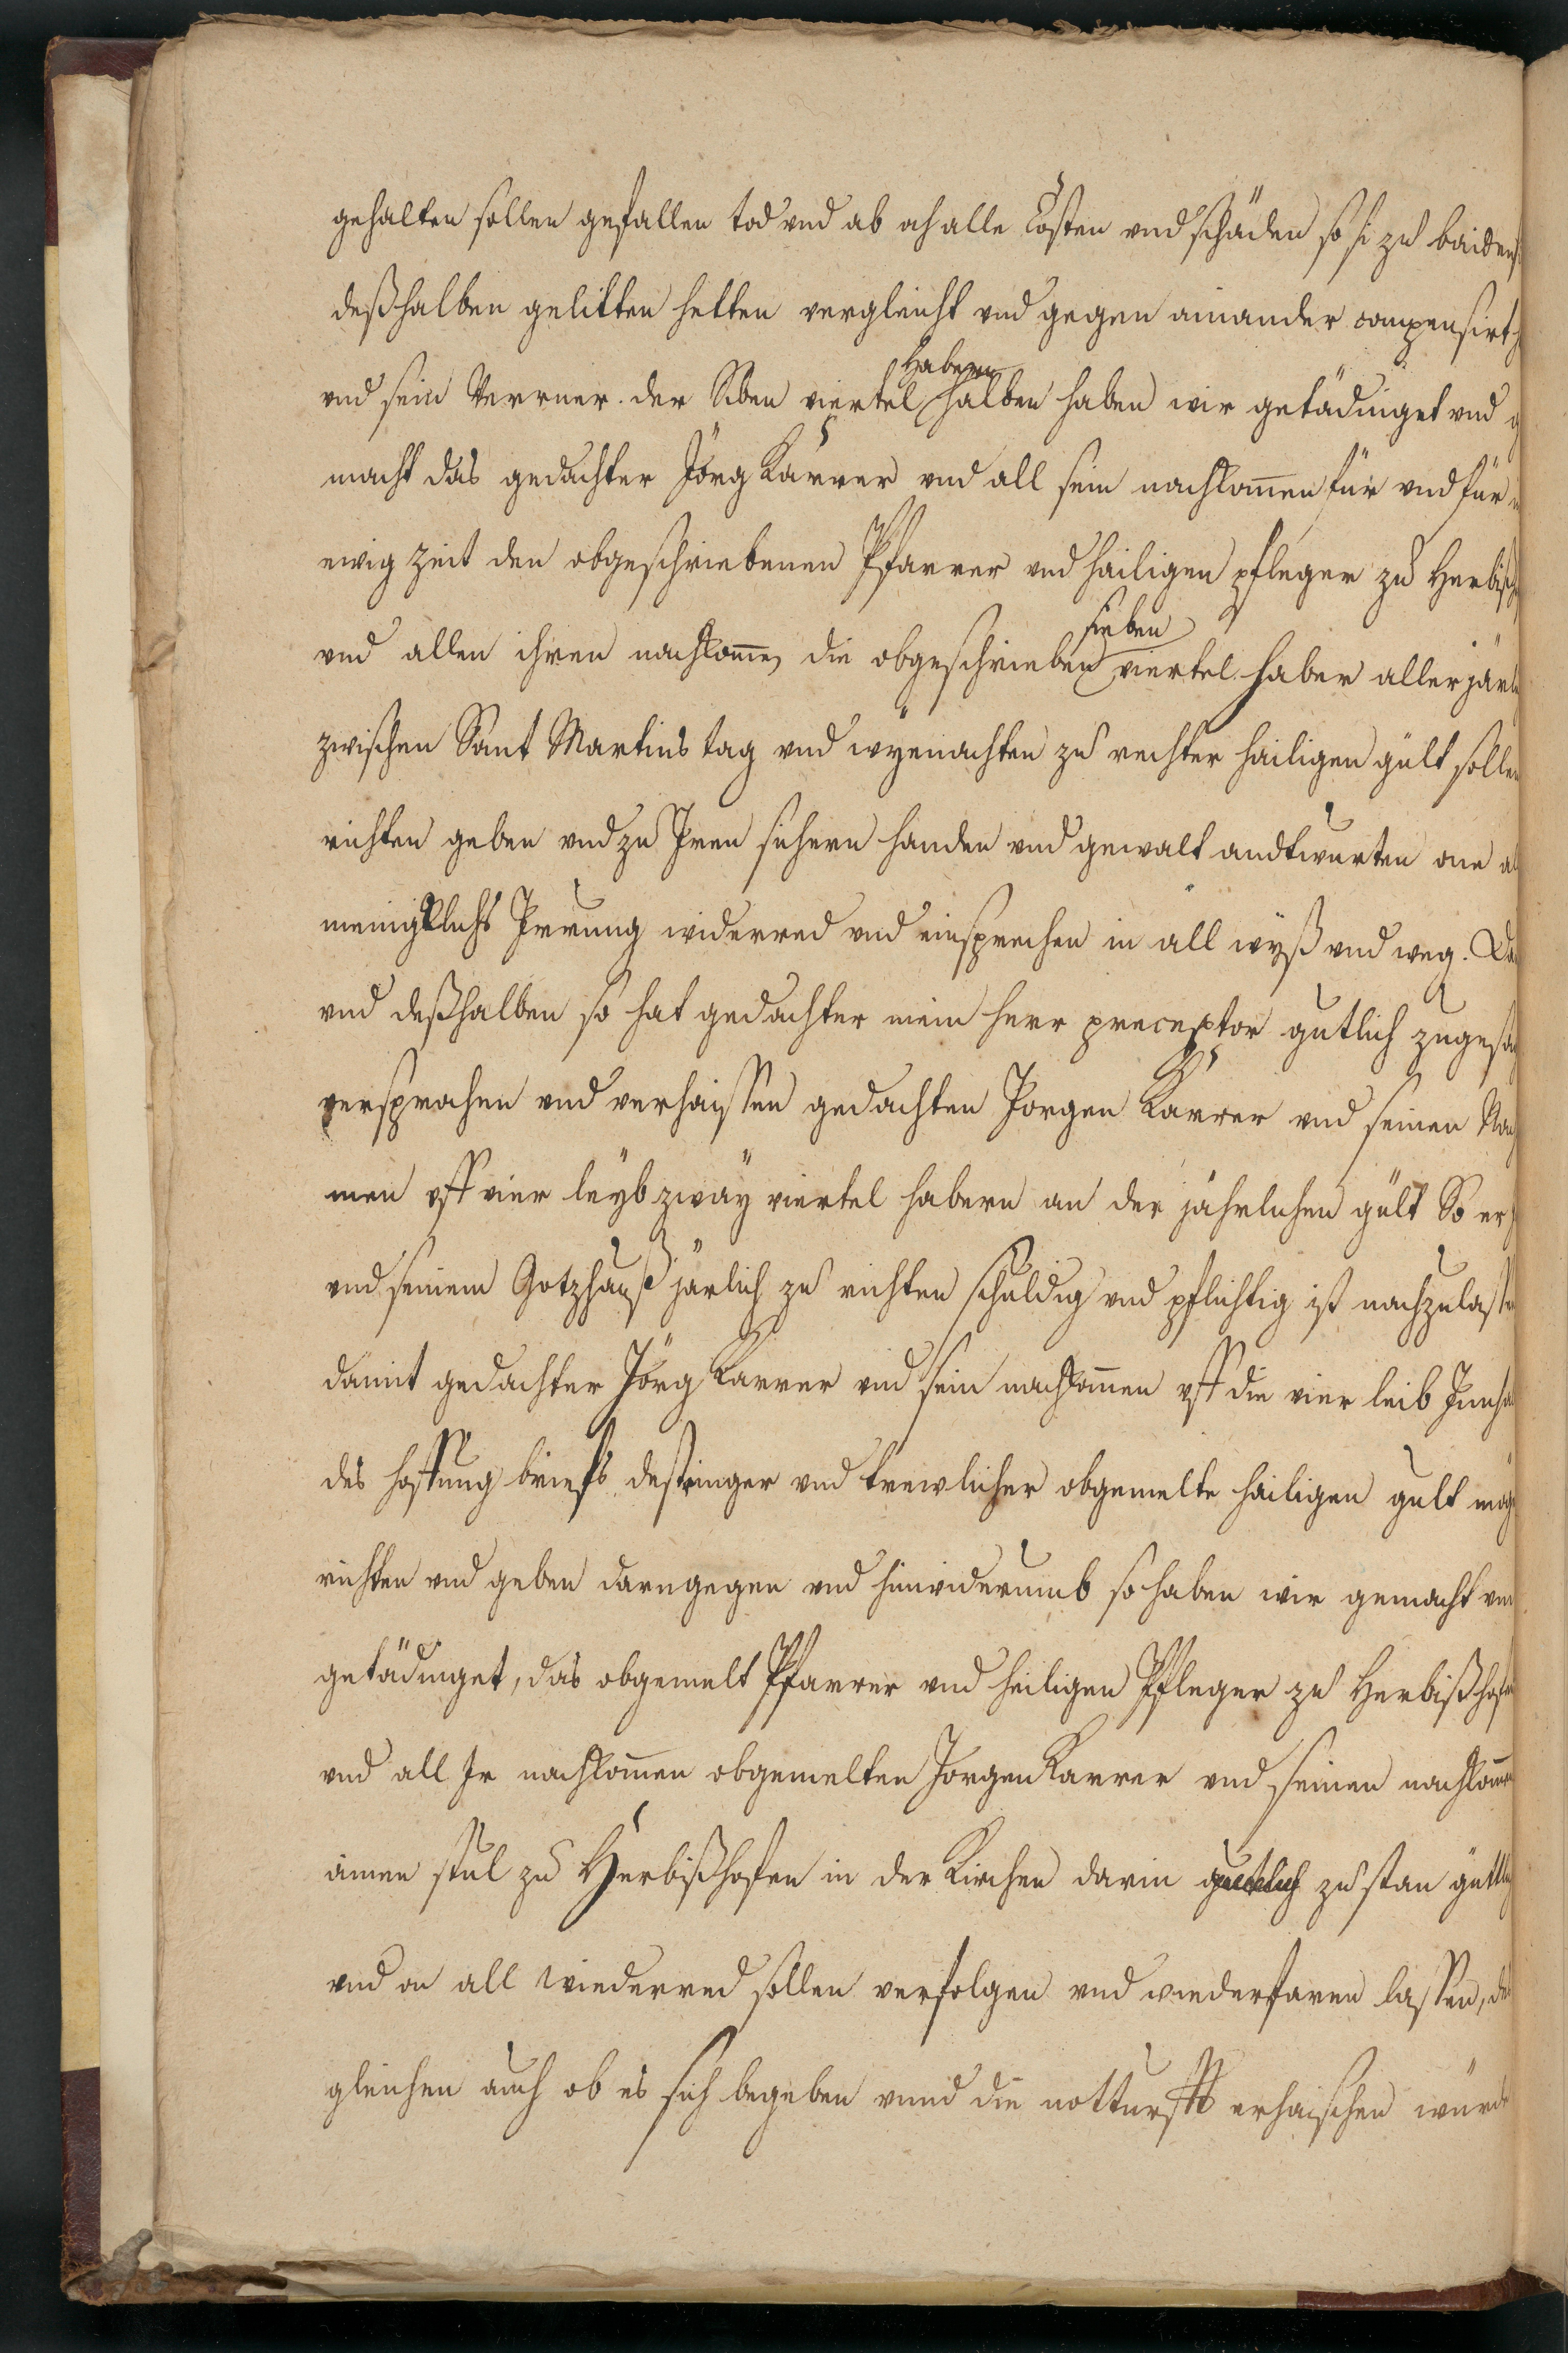 gehalten sollen gefallen tod vnd ab och alle Cösten vnd schäden so si zu baiden
deßhalben gelitten hetten vergleicht vnd gegen ainander compensirt
vnd sein Verrner. der Siben viertel Habern halben haben wir getädinget vnd g
macht das gedachter Jörg Karrer vnd all sein nachkom̄en für vnd für
ewig zeit den obgeschriebenen Pfarrer vnd hailigen pfleger zu Herbisch
vnd allen ihren nachkom̄e, die obgeschrieben sieben viertel haber aller järl
zwischen Sant Martins tag vnd wÿenachten zu rechter hailigen gült sollen
richten geben vnd zu Iren sichern handen vnd gewalt andtwurten one al
menigklichs Irrung widerred vnd einsprechen in all wÿß vnd weg. Da
vnd deßhalben so hat gedachter mein herr preceptor gutlich zugesag
versprochen vnd verhaissen gedachten Jorgen Karrer vnd seinen Nach
men vff vier leÿb zwaÿ viertel habern an der jährlichen gült So er
vnd seinem Gotzhauß järlich zu richten schuldig vnd pflichtig ist nachzulassen
damit gedachter Jörg Karrer vnd sein nachkom̄en vff die vier leib Innha
des hoffung briefs destringer vnd trewlicher obgemelte hailigen gult möge
richten vnd geben darngegen vnd hinwiderumb so haben wir gemacht vnd
getädinget, das obgemelt Pfarrer vnd heiligen Pfleger zu Herbißhofen
vnd all Ir nachkom̄en obgemelten Jorgen Karrer vnd seinen nachkom̄en
ainen stul zu Herbißhofen in der Kirchen darin gutlich zu stan güttlich
vnd on all wiederred sollen verfolgen vnd wiederfaren lassen, des
gleichen auch ob es sich begeben vnnd die notturfft erhaischen wurde